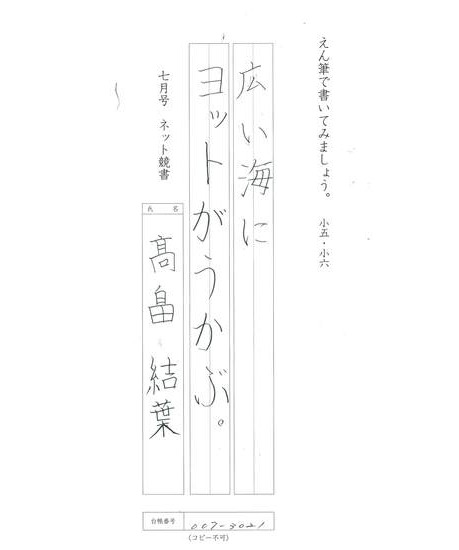 えん筆で書いてみましょう。 小五・小六
広い海に
ヨットがうかぶ。
七月号 ネット競書
氏名
髙畠 結葉
台帳番号 007-3021
(コピー不可)